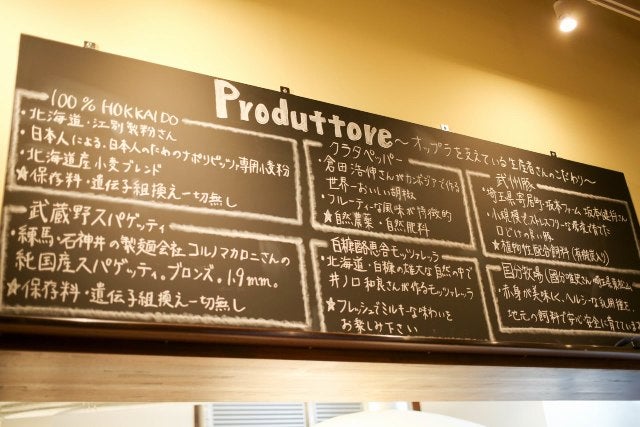 Produttore
～オップラを支えている生産者さんのこだわり～
100% HOKKAIDO
・北海道・江別製粉さん
・日本人による、日本人のためのナポリピッツァ専用小麦粉
・北海道産小麦ブレンド
★保存料・遺伝子組換え一切無し
武蔵野スパゲッティ
・練馬・石神井の製麺会社コルノマカロニさんの
純国産スパゲッティ。ブロンズ。1.9mm。
★保存料・遺伝子組換え一切無し
クラタペッパー
・倉田浩伸さんがカンボジアで作る
世界一おいしい胡椒
・フルーティーな風味が特徴的
★自然農薬・自然肥料
白糠酪恵舎モッツァレッラ
・北海道・白糠の雄大な自然の中で
井ノ口和良さんが作るモッツァレッラ
★フレッシュでミルキーな味わいを
お楽しみ下さい
武州豚
・埼玉県寄居町・坂本ファーム
・小規模でストレスフリーな養豚で育てた
口どけの良い豚
★植物性配合飼料
國分牧場
・赤身が美味しく、ヘルシーな乳用種を、
地元の飼料で安心安全に育てています